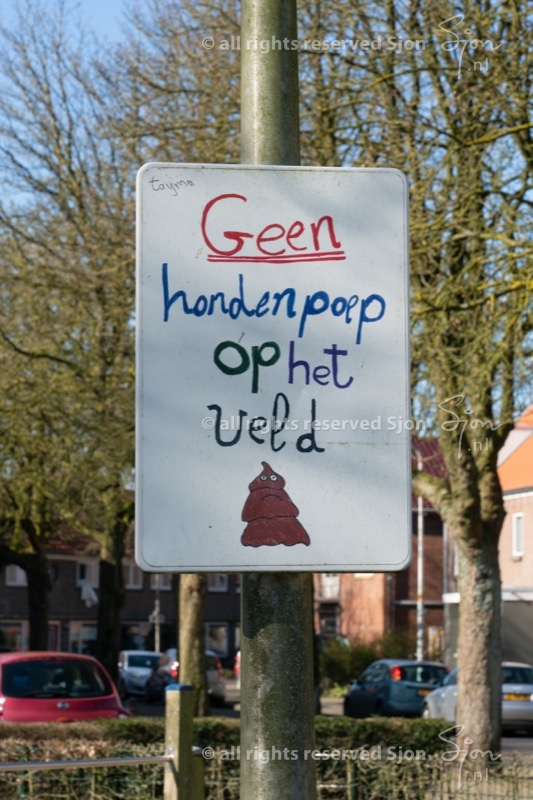 © all rights reserved Sjon
Sjon
.nl
toymo
Geen
hondenpoep
op het
veld
© all rights reserved Sjon
Sjon
.nl
© all rights reserved Sjon
Sjon
.nl